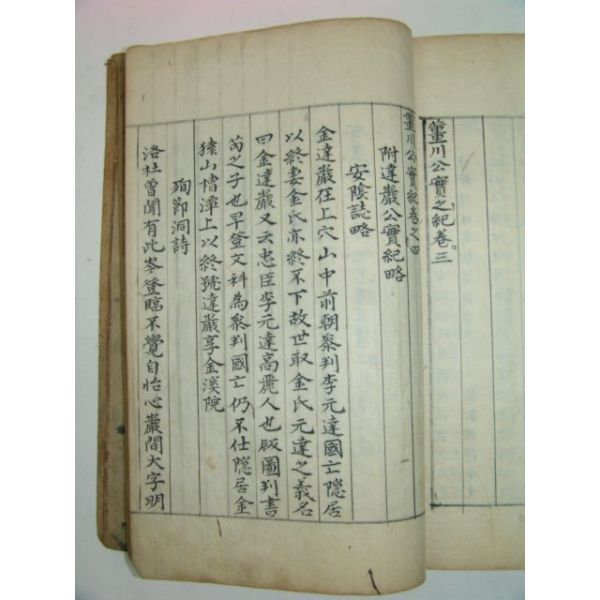 菫川公實之紀卷三
菫川公實紀卷之四
附達巖公實紀略
安陰誌略
金達巖在上穴山中前朝參判李元達國亡隱居
以終妻金氏亦終不下故世取金氏元達之義名
曰金達巖又云忠臣李元達高麗人也版圖判書
芮之子也早登文科為參判國亡仍不仕隱居金
猿山槽潭上以終號達巖享金溪院
殉節洞詩
洛社曾聞有此岑登臨不覺自怡心巖間大字明